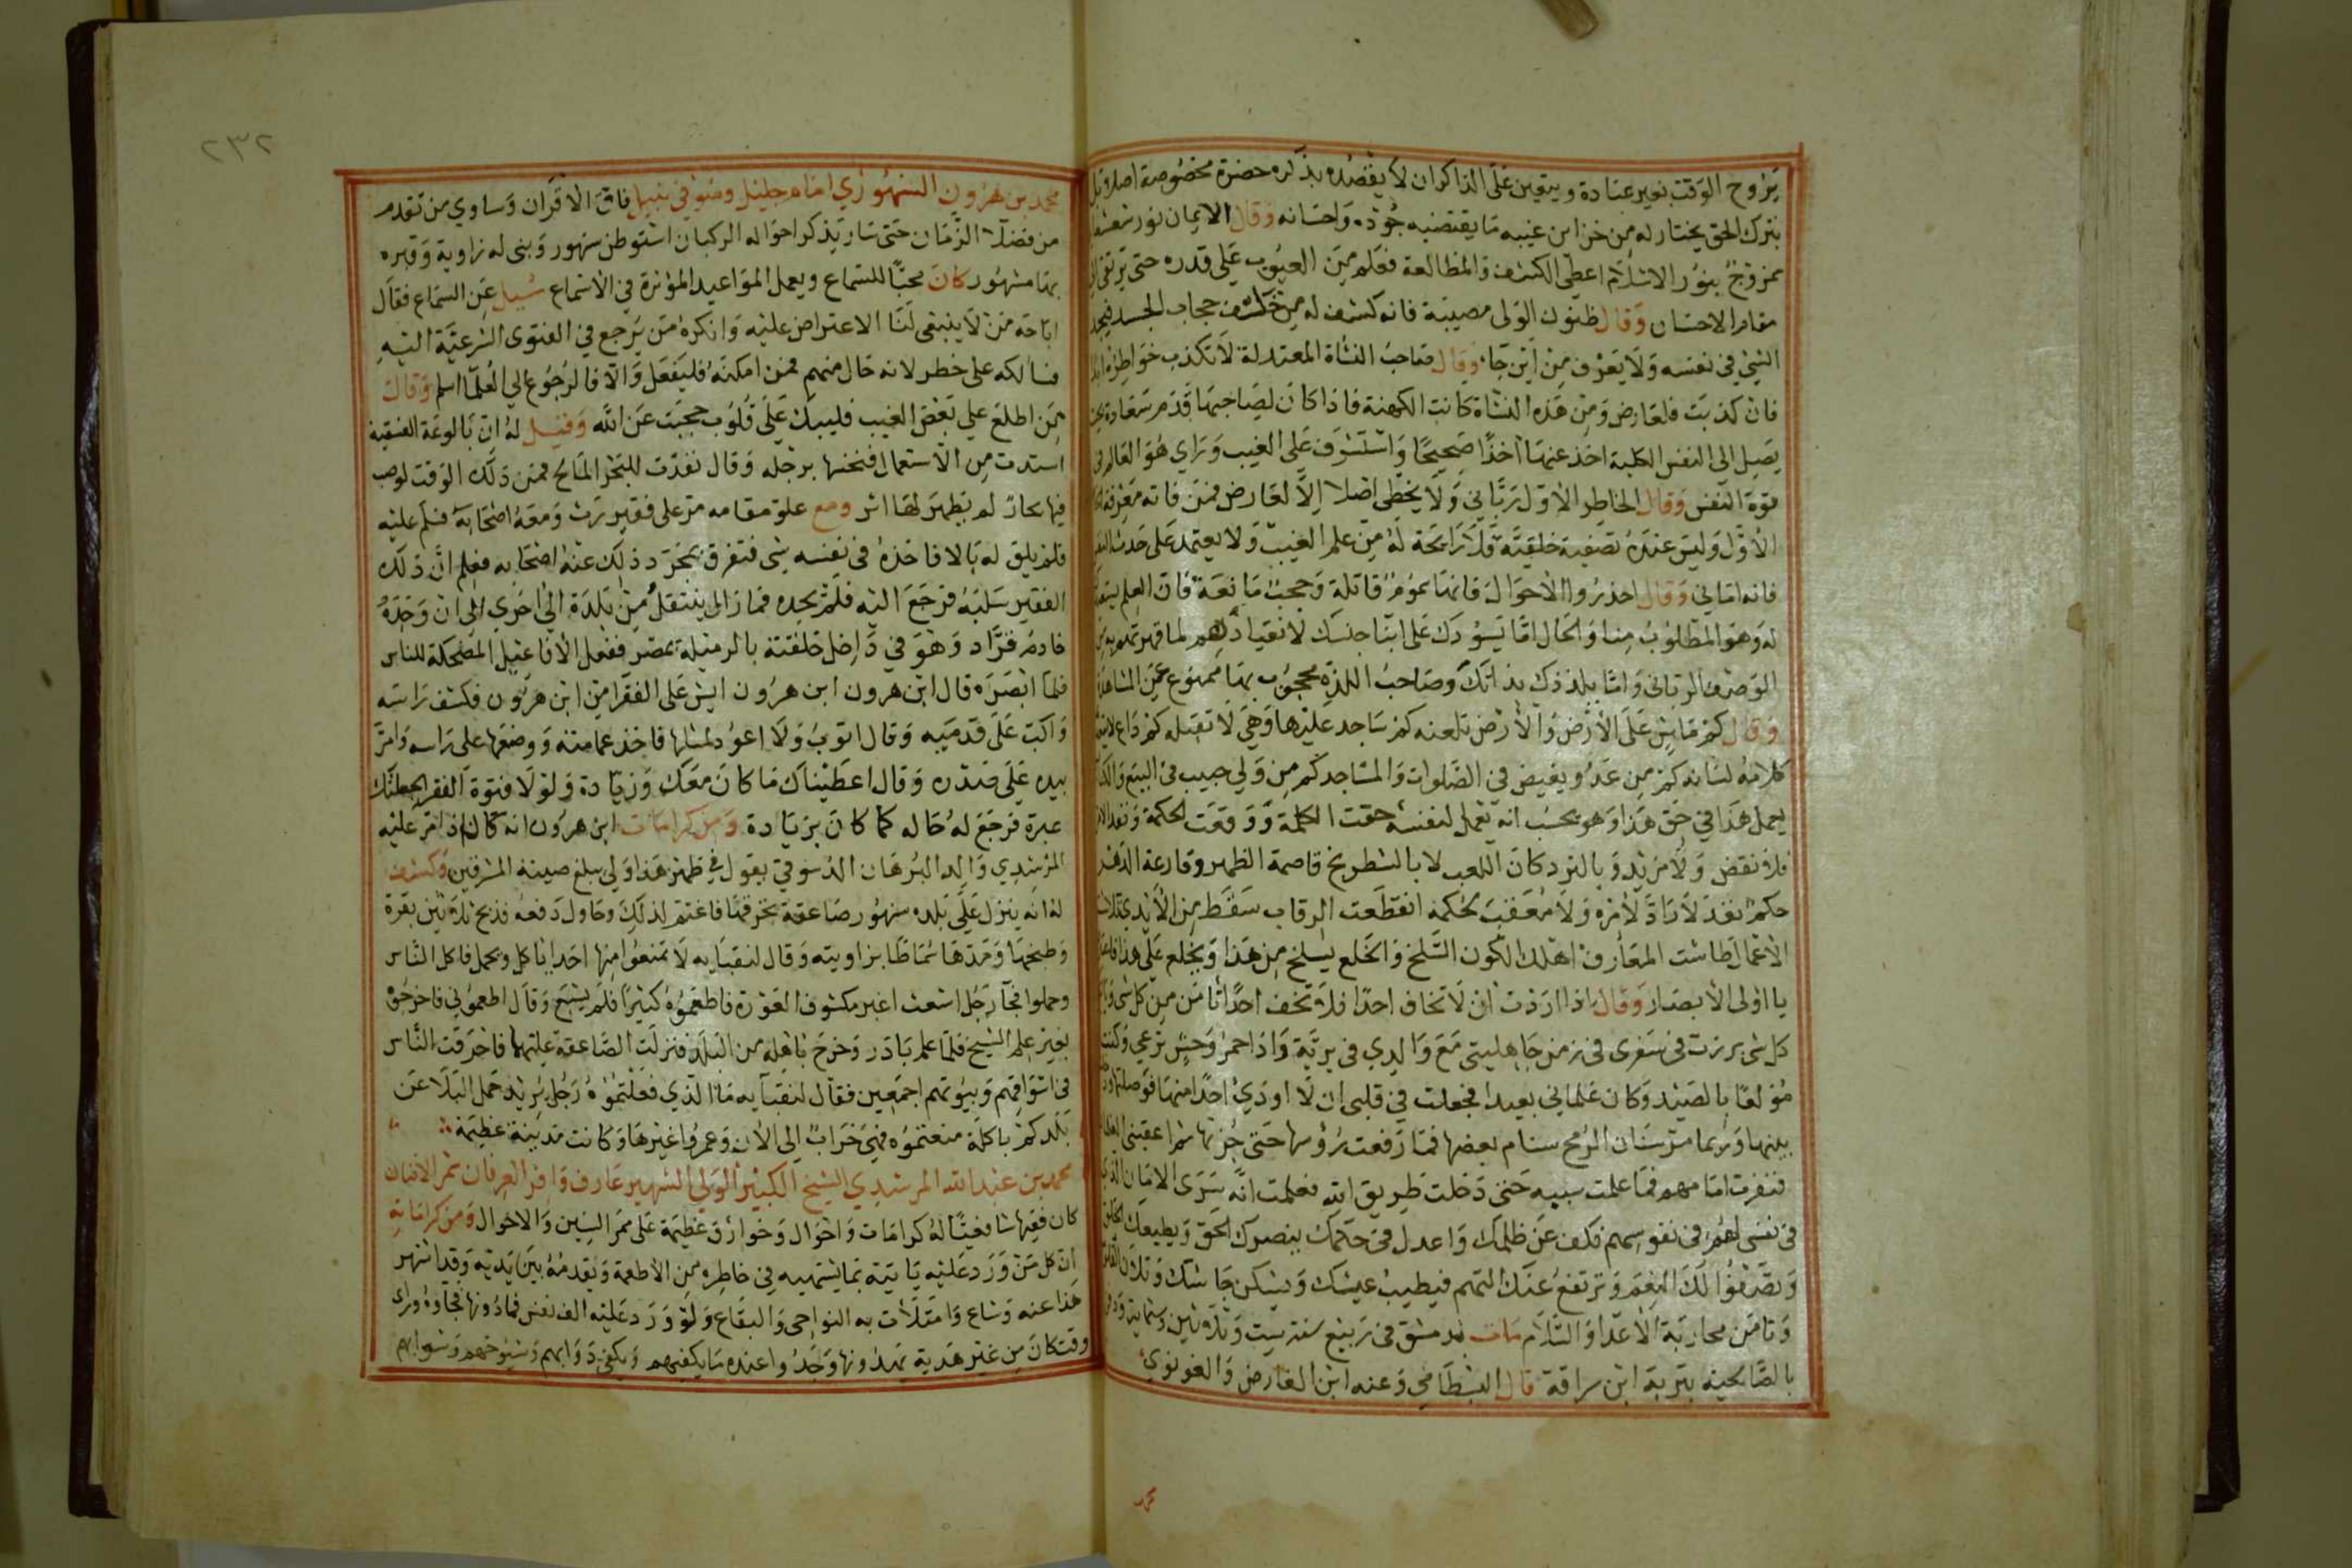 يروح الوقت بغير عنادة ويتعين على الذاكر ان لا يقصده بذكره حضرة مخصوصة اصلا وقبل
بترك الحق يختار له من خزاين غيبه ما يقتضيه جوده واحسانه وقال الايمان نور شعشعا
ممزوج بنور الاسلام اعطى الكشف والمطالعة فعلم من الغيوب على قدره حتى يرتقى الى
مقام الاحسان وقال ظنون الولى مصيبة فانه كشف له من خلف حجاب الجسد فيجد
الشيئ في نفسه ولا يعرف من اين جاء وقال صاحب النشاة المعتدلة لا تكذب خواطره ابدا
فان كذبت فلعارض ومن هذه النشاة كانت الكهنة فاذا كان لصاحبها قدم سعادة بحيث
يصل الى النفس الكلية اخذ عنها اخذا صحيحا واستشرف على الغيب وراي هو العالم في
قوة النفس وقال الخاطر الاول رباني ولا يخطى اصلا الا لعارض فمن فاته معرفة الخاطر
الاول وليس عنده تصفية خلقية فلا رايحة له من علم الغيب ولا يعتمد على حديث النفس
فانه اماني وقال احذروا الاحوال فانها سموم قاتلة وحجب مانعة فان العلم يستعبدك
له وهو المطلوب منا والحال اما يسودك على ابنا جنسك لانقيادهم لما قهرتهم به من
الوصف الرباني واما يلذذك بذاتك وصاحب اللذة محجوب بها ممنوع عن المشاهدة
وقال كم ماش على الارض والارض تلعنه كم ساجد عليها وهي لا تقبله كم داع لا يتعدى
كلامه لسانه كم من عدو بغيض في الصلوات والمساجد كم من ولي حبيب في البيع والكنايس
يعمل هذا في حق هذا وهو يحسب انه يعمل لنفسه حقت الكلمة ووقعت الحكمة ونفذ الامر
فلا نقض ولا مزيد وبالنرد كان اللعب لا بالشطرنج قاصمة الظهر وقارعة الدهر
حكم نفذ لا راد لامره ولا معقب لحكمه انقطعت الرقاب سقط من الايدي تلاشت
الاعمال طاشت المعارف اهلك الكون السلخ والخلع يسلخ من هذا ويخلع على هذا فاعتبروا
يا اولى الابصار وقال اذا اردت ان لا تخاف احدا فلا تخف احدا تامن من كل شى واتى
كل شى بررت في سفرى في زمن جاهليتي مع والدي في برية واذا حمر وحش ترعي وكنت
مولعا بالصيد وكان غلماني بعيدا فجعلت في قلبى ان لا اوذي احدا منها فوصلتها ودخلت
بينها وربما مر سنان الرمح بسنام بعضها فما رفعت رؤسها حتى جزتها ثم اعقبنى الغلمان
فنفرت امامهم فما علمت سببه حتى دخلت طريق الله فعلمت انه سرى الامان الذي
في نفسى لهم في نفوسهم فكف عن ظلمك واعدل في حكمك ينصرك الحق ويطيعك الخلق
وتصفو لك النعم وترتفع عنك التهم فيطيب عيشك ويسكن جاشك
وتامن محاربة الاعدا والسلام مات بدمشق في ربيع سنة ست وثلاثين وستماية ودفن
بالصالحية بتربة ابن سراقة قال البسطامي وعنه ابن الفارض والقونوي
محمد
٢٣٢
محمد بن هرون السنهوري امام جليل وصوفي نبيل فاق الاقران وساوي من تقدم
من فضلا الزمان حتى سار بذكر احواله الركبان استوطن سنهور وبنى له زاوية وقبره
بها مشهور كان محبا للسماع ويعمل المواعيد المؤثرة في الاسماع سيل عن السماع فقال
اباحه من لا ينبغى لنا الاعتراض عليه وانكره من يرجع في الفتوى الشرعية اليه
فسالكه على خطر لانه خال منهم فمن امكنه فليفعل والا فالرجوع الي العلما اسلم وقال
من اطلع علي بعض الغيب فليبك على قلوب حجبت عن الله وقيل له ان بالوعة الفسقية
استدت من الاستعمال فنخسها برجله وقال نفذت للبحر المالح فمن ذلك الوقت لو صب
فيها بحار لم يظهر لها اثر ومع علو مقامه مر على فقير رث ومعه اصحابه فسلم عليه
فلم يلق له بالا فاخذه في نفسه شى فتفرق بمجرد ذلك عنه اصحابه فعلم ان ذلك
الفقير سلبه فرجع اليه فلم يجده فما زال ينتقل من بلدة الي اخري الى ان وجده
خادم قراد وهو في داخل حلقته بالرميلة بمصر ففعل الافاعيل المضحكة للناس
فلما ابصره قال ابن هرون ابن هرون ايش على الفقرا من ابن هرون فكشف راسه
واكب على قدميه وقال اتوب ولا اعود لمثلها فاخذ عمامته ووضعها على راسه وامر
بيده على صدره وقال اعطيناك ما كان معك وزيادة ولولا فتوة الفقر لجعلتك
عبرة فرجع له حاله كما كان بزيادة ومن كرامات ابن هرون انه كان اذا مر عليه
المرشدي والد البرهان الدسوقي يقول في ظهر هذا ولي يبلغ صيته المشرقين وكشف
له انه ينزل على بلده سنهور صاعقة تحرقها فاغتم لذلك وحاول دفعه فذبح ثلاثين بقرة
وطبخها ومدها سماطا بزاويته وقال لنقبايه لا تمنعوا منها احدا ياكل ويحمل فاكل الناس
وحملوا فجا رجل اشعث اغبر مكشوف العورة فاطعموه كثيرا فلم يشبع وقال اطعموني فاخرجوه
بغير علم الشيخ فلما علم بادر وخرج باهله من البلد فنزلت الصاعقة عليها فاحرقت الناس
في اسواقهم وبيوتهم اجمعين فقال لنقبايه ما الذي فعلتموه رجل يريد حمل البلا عن
بلدكم باكلة منعتموه فهي خراب الى الان وعمروا غيرها وكانت مدينة عظيمة
محمد بن عبد الله المرشدي الشيخ الكبير الولي الشهير عارف وافر العرفان مثمر الافنان
كان فقيها شافعيا له كرامات واحوال وخوارق عظيمة على ممر السنين والاحوال ومن كراماته
ان كل من ورد عليه ياتيه بما يشتهيه في خاطره من الاطعمة ويقدمه بين يديه وقد اشتهر
هذا عنه وشاع وامتلات به النواحى والبقاع ولو ورد عليه الف نفس فما دونها فجاؤه وراى
وقت كان من غير هدية يهدونها وجدوا عنده ما يكفيهم ويكفي دوابهم وشيوخهم وشوابهم